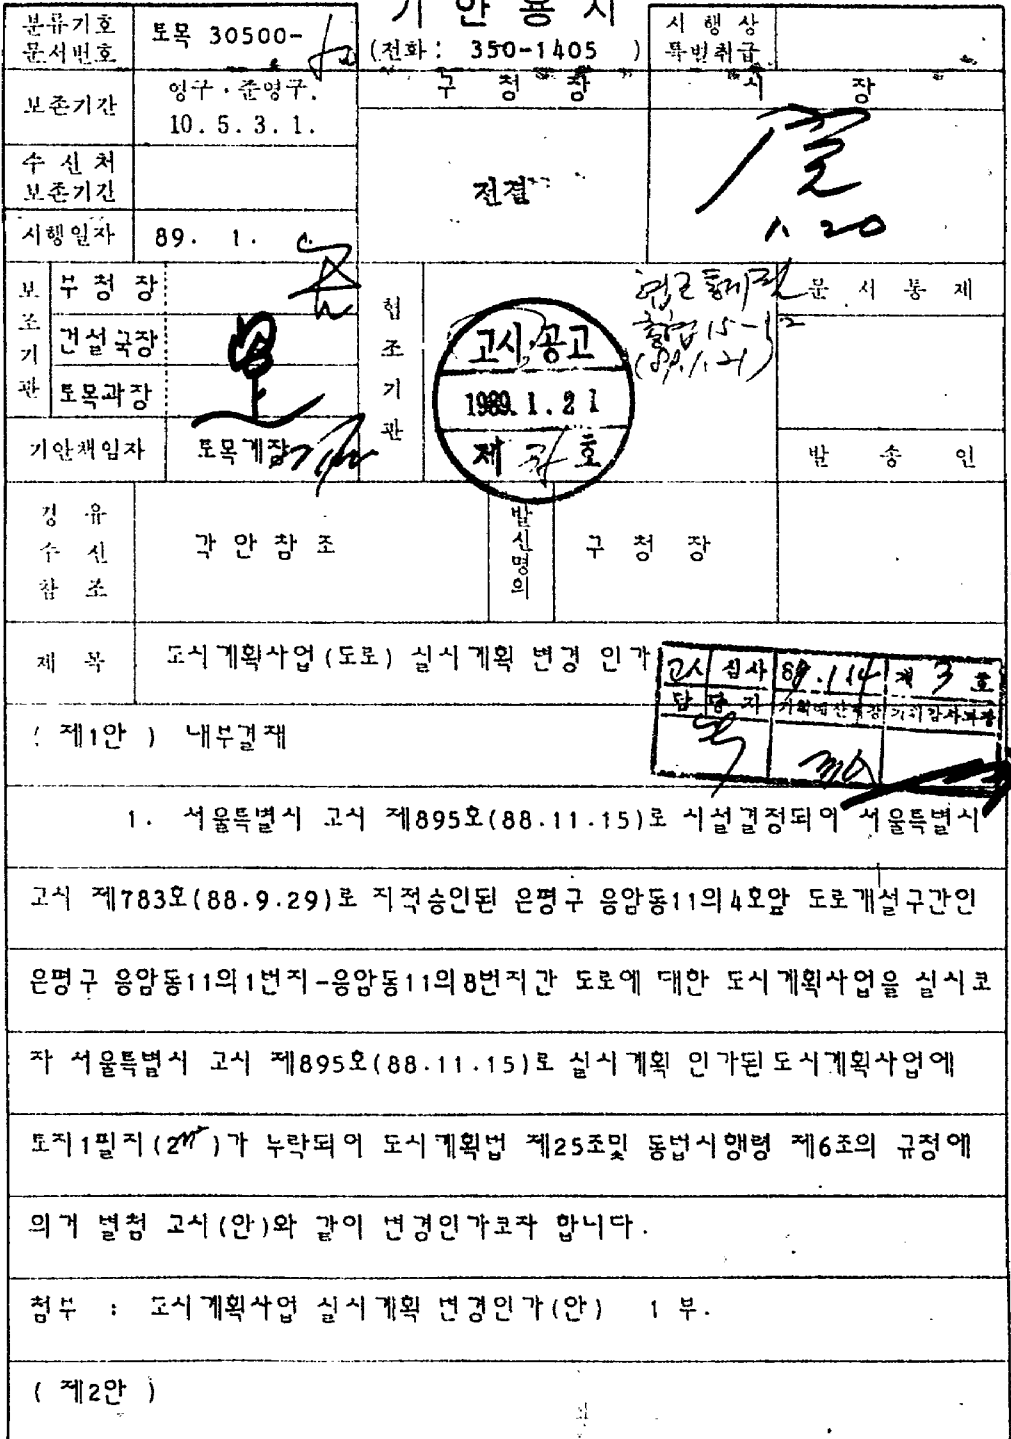 기 안 용 지
분류기호
문서번호
토목 30500-
(전화 : 350-1405 )
시 행 상
특별취급
보존기간
영구 · 준영구.
10. 5. 3. 1.
구 청 장
전결
시 장
1. 20
수 신 처
보존기간
시행일자
89. 1.
보조기관
부 청 장
건설국장
토목과장
기안책임자
토목계장
협조기관
고시.공고
1989. 1. 2 1
제 호
(89.1.21)
문 서 통 제
발 송 인
경 유
수 신
참 조
각 안 참 조
발신명의
구 청 장
제 목
도시계획사업(도로) 실시계획 변경 인가
고시 심사 89.1.14 제 3 호
담 당 자
( 제1안 ) 내부결재
1. 서울특별시 고시 제895호(88.11.15)로 시설결정되어 서울특별시
고시 제783호(88.9.29)로 지적승인된 은평구 응암동11의4호앞 도로개설구간인
은평구 응암동11의1번지-응암동11의8번지간 도로에 대한 도시계획사업을 실시코
자 서울특별시 고시 제895호(88.11.15)로 실시계획 인가된 도시계획사업에
토지1필지(2㎡)가 누락되어 도시계획법 제25조및 동법시행령 제6조의 규정에
의거 별첨 고시(안)와 같이 변경인가코자 합니다.
첨부 : 도시계획사업 실시계획 변경인가(안) 1 부.
( 제2안 )